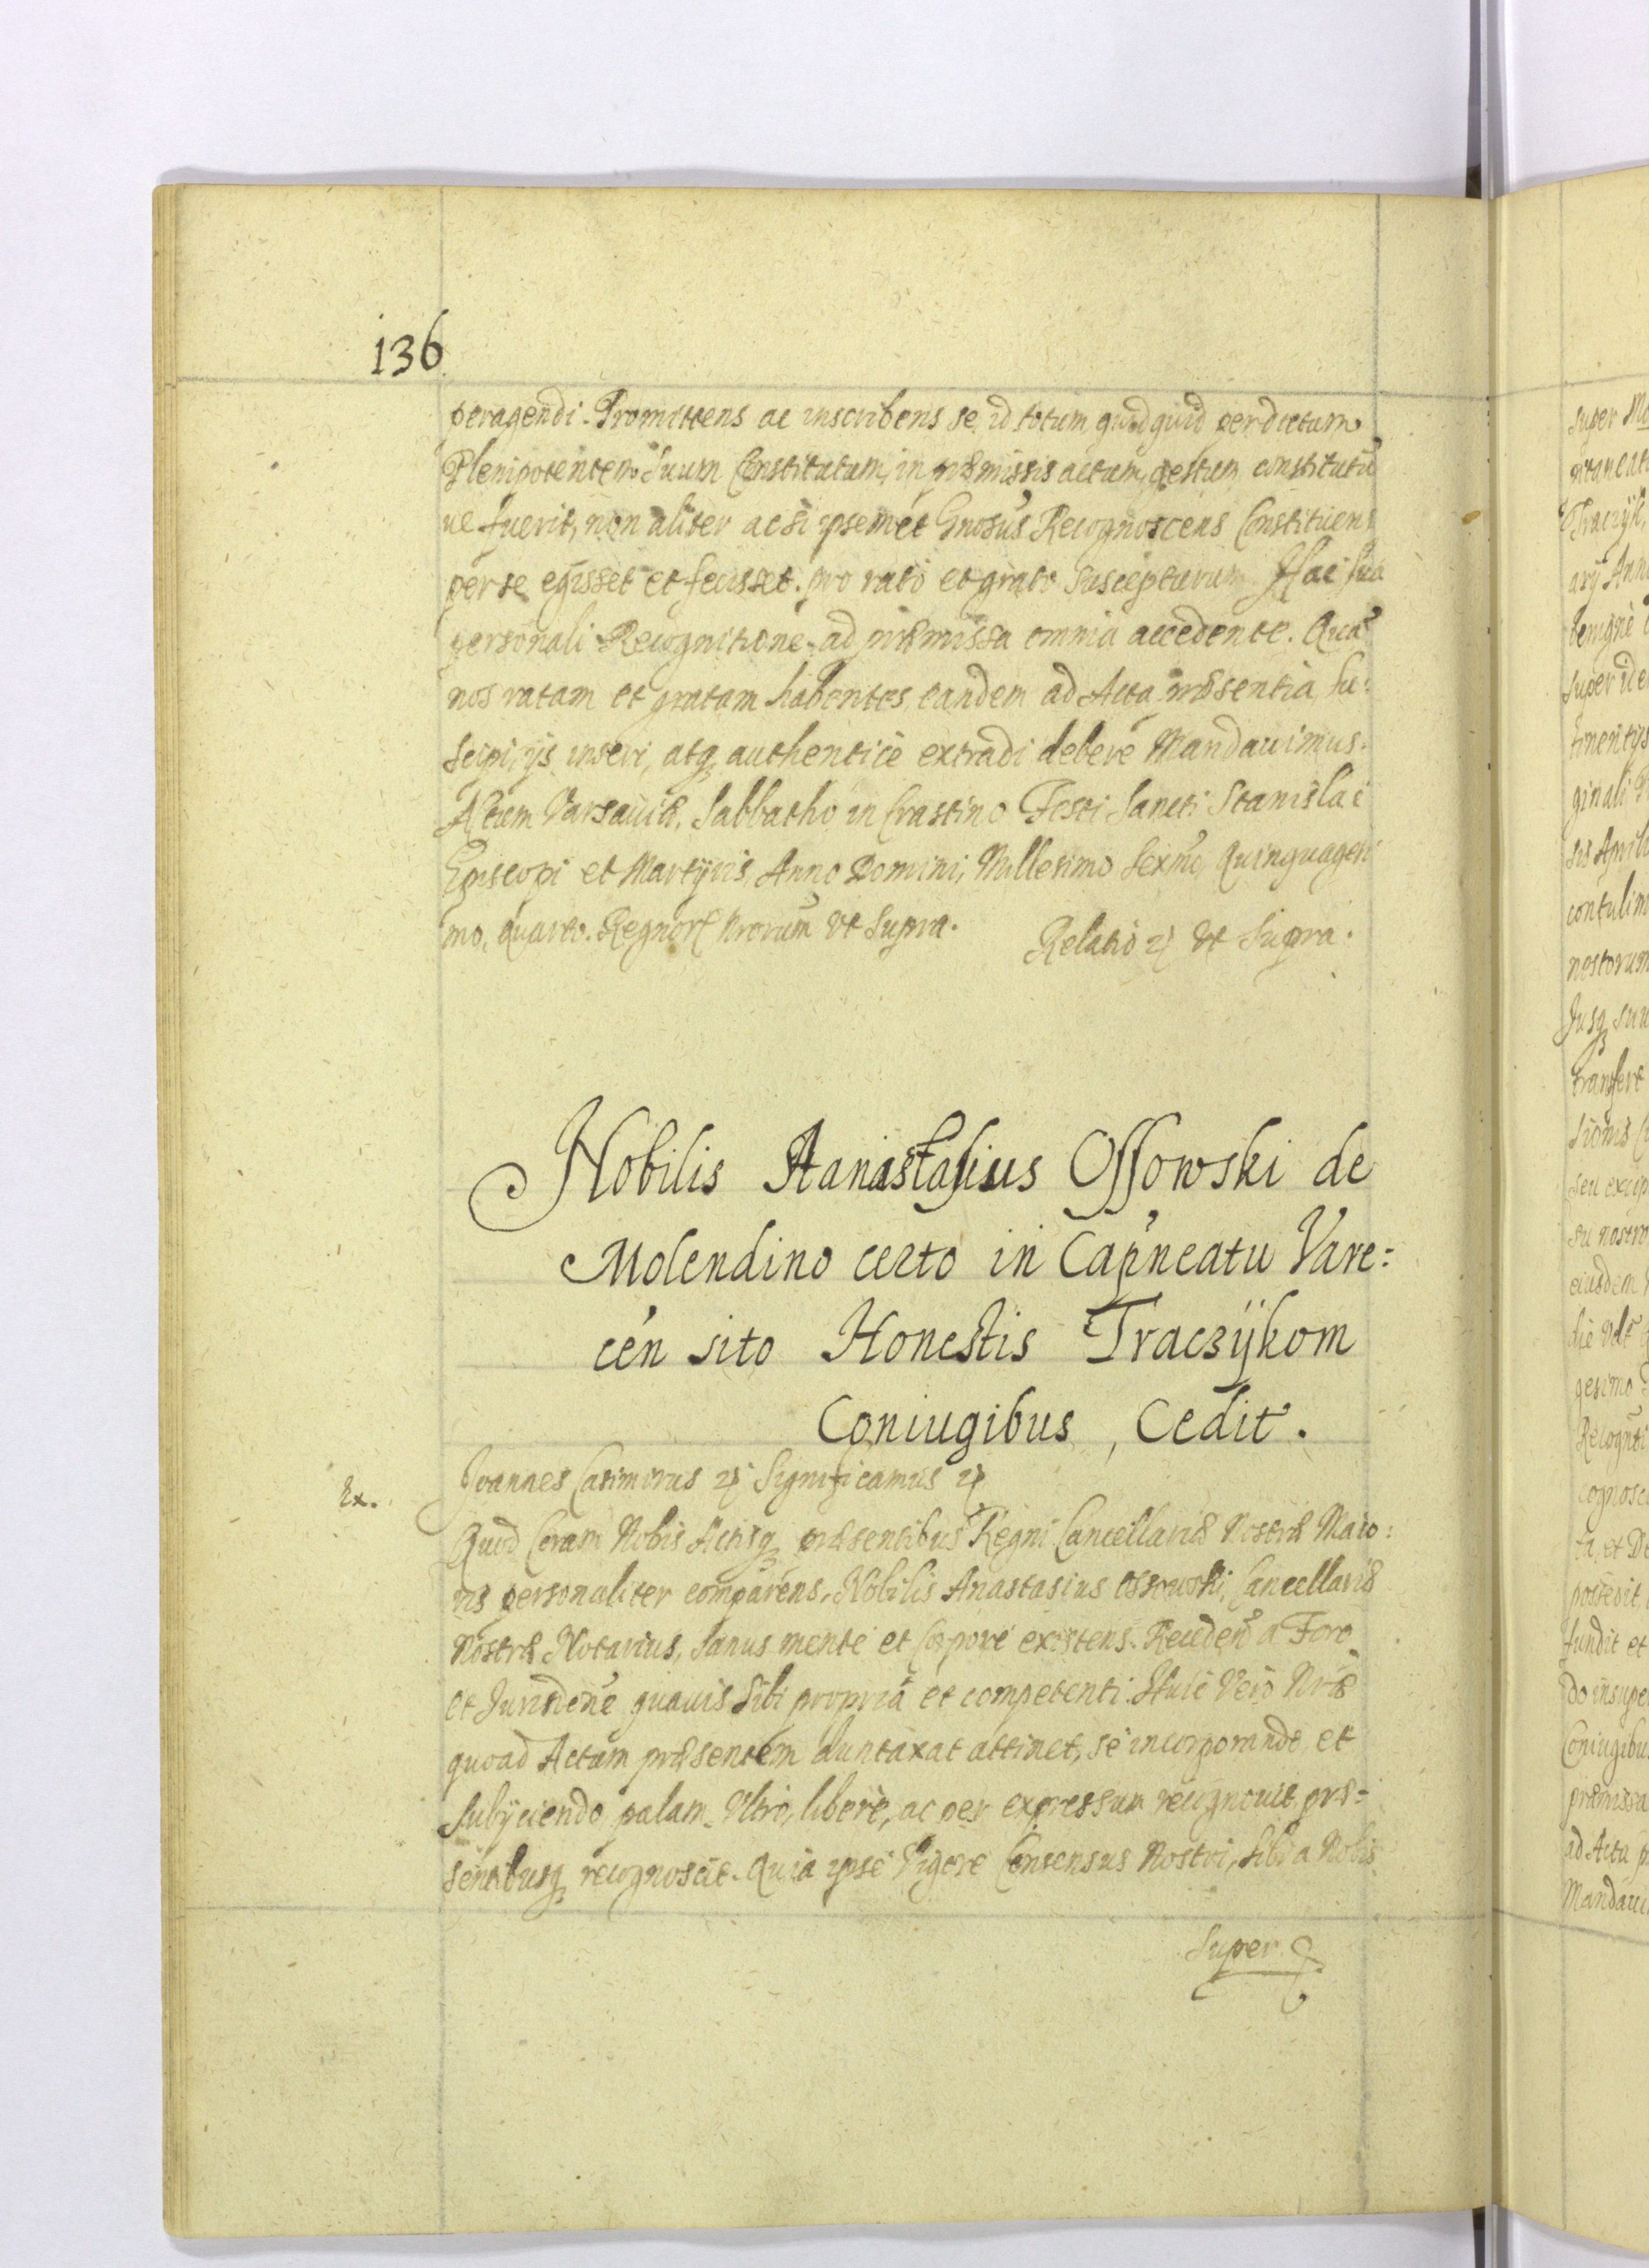 136
peragendi. Promittens ac inscribens se, id totum quidquid per dictum
Plenipotentem Suum Constitutum, in præmissis actum, gestum constitutũ
ue fuerit, non aliter ac si ipsemet Gnosus Recognoscens Constituens
per se egisset et fecisset. pro rato et grato suscepturum. Hac sua
personali Recognitione ad præmissa omnia accedente. Quã
nos ratam et gratam habentes, eandem ad Acta præsentia su:
scipi, ijs inseri, atq authentice extradi debere Mandauimus.
Actum Varsauiæ, Sabbatho in Crastino Festi Sancti Stanislai
Episcopi et Martyris, Anno Domini, Millesimo Sexmo, Quinquagesi
mo, quarto. Regnor Nrorum vt Supra.
Relatio ꝛ vt Supra.
Nobilis Anastasius Ossowski de
Molendino certo in Cap'neatu Vare:
cen sito Honestis Traczÿkom
Coniugibus, Cedit.
Ex.
Joannes Casimirus ꝛ Significamus ꝛ
Quod Coram Nobis Actisq præsentibus Regni Cancellariæ Nostræ Maio:
ris personaliter comparens, Nobilis Anastasius Ossowski, Cancellariæ
Nostræ Notarius, Sanus mente et Corpore existens. Receden a Foro
et Jurisdene quauis Sibi propria et competenti. Huic Vero Nræ
quoad Actum præsentem duntaxat attinet, se incorporando et
Subijciendo, palam, Vltro, libere, ac per expressum recognouit præ=
sentibusq recognoscit. Quia ipse Vigore Consensus Nostri, Sibi a Nobis
Super
super
Traczÿk
benigne
super ide
ginali
sis Aprili
contulim
nostorum
Jusq suu
transfert
seu excip
su nostro
eiusdem
gesimo
ta, et De
possedit
fundit et
do insupe
Coniugibu
præmissa
ad Acta p
Mandaui